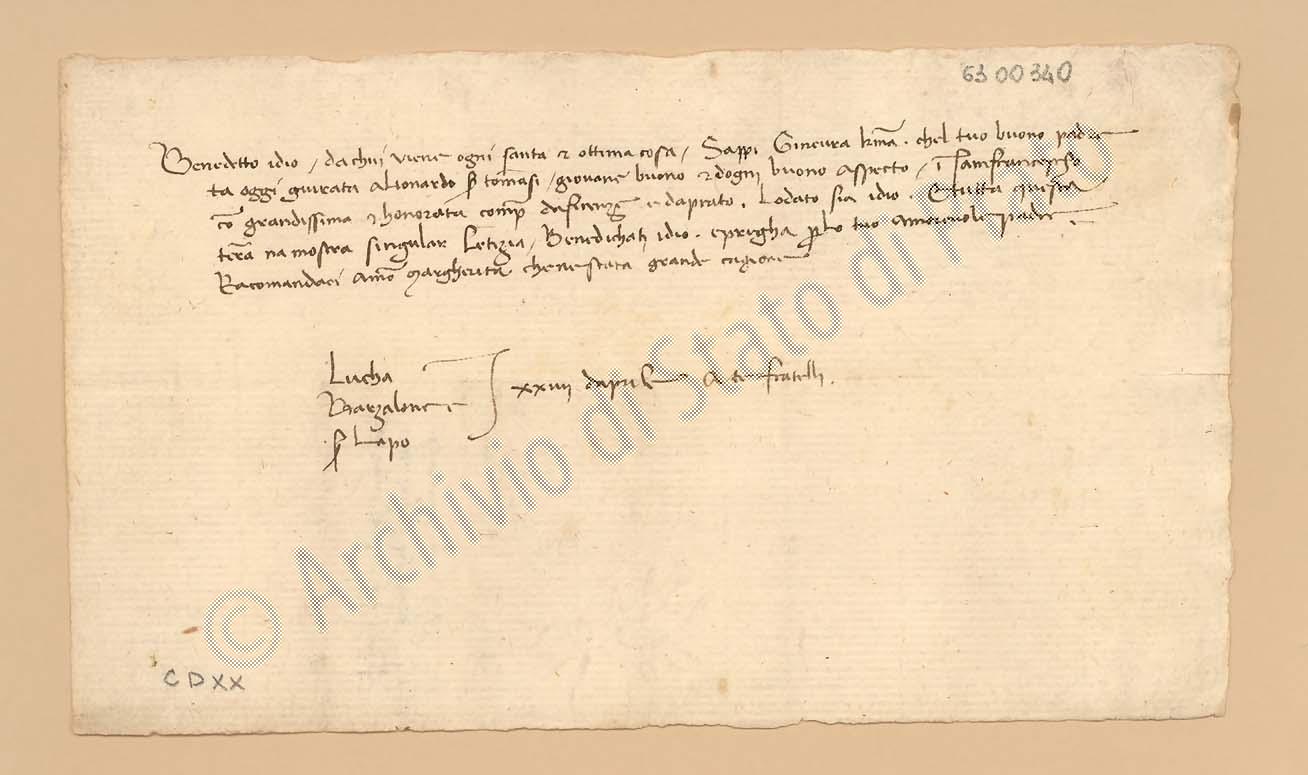 63 00 340
Benedetto idio / da chui viene ogni santa et ottima cosa / Sappi Ginevra kr̄ma . chel tuo buono padre
ta oggi giurata a Lionardo ser tomasi / giovane buono et dogni buono aspecto / ī sam francescho
cō grandissima et honorata comp̄ da firenze e da prato . Lodato sia idio . E tutta questa
terra na mostra singular letizia / Benedicha ti idio . e prigha per lo tuo amorevole padre
Racomandaci a mō Margherita che ne stata grande cagione
Lucha
Barzalone e
ser Lapo
xxiiij daprile A te fratelli .
CDXX
© Archivio di Stato di Prato